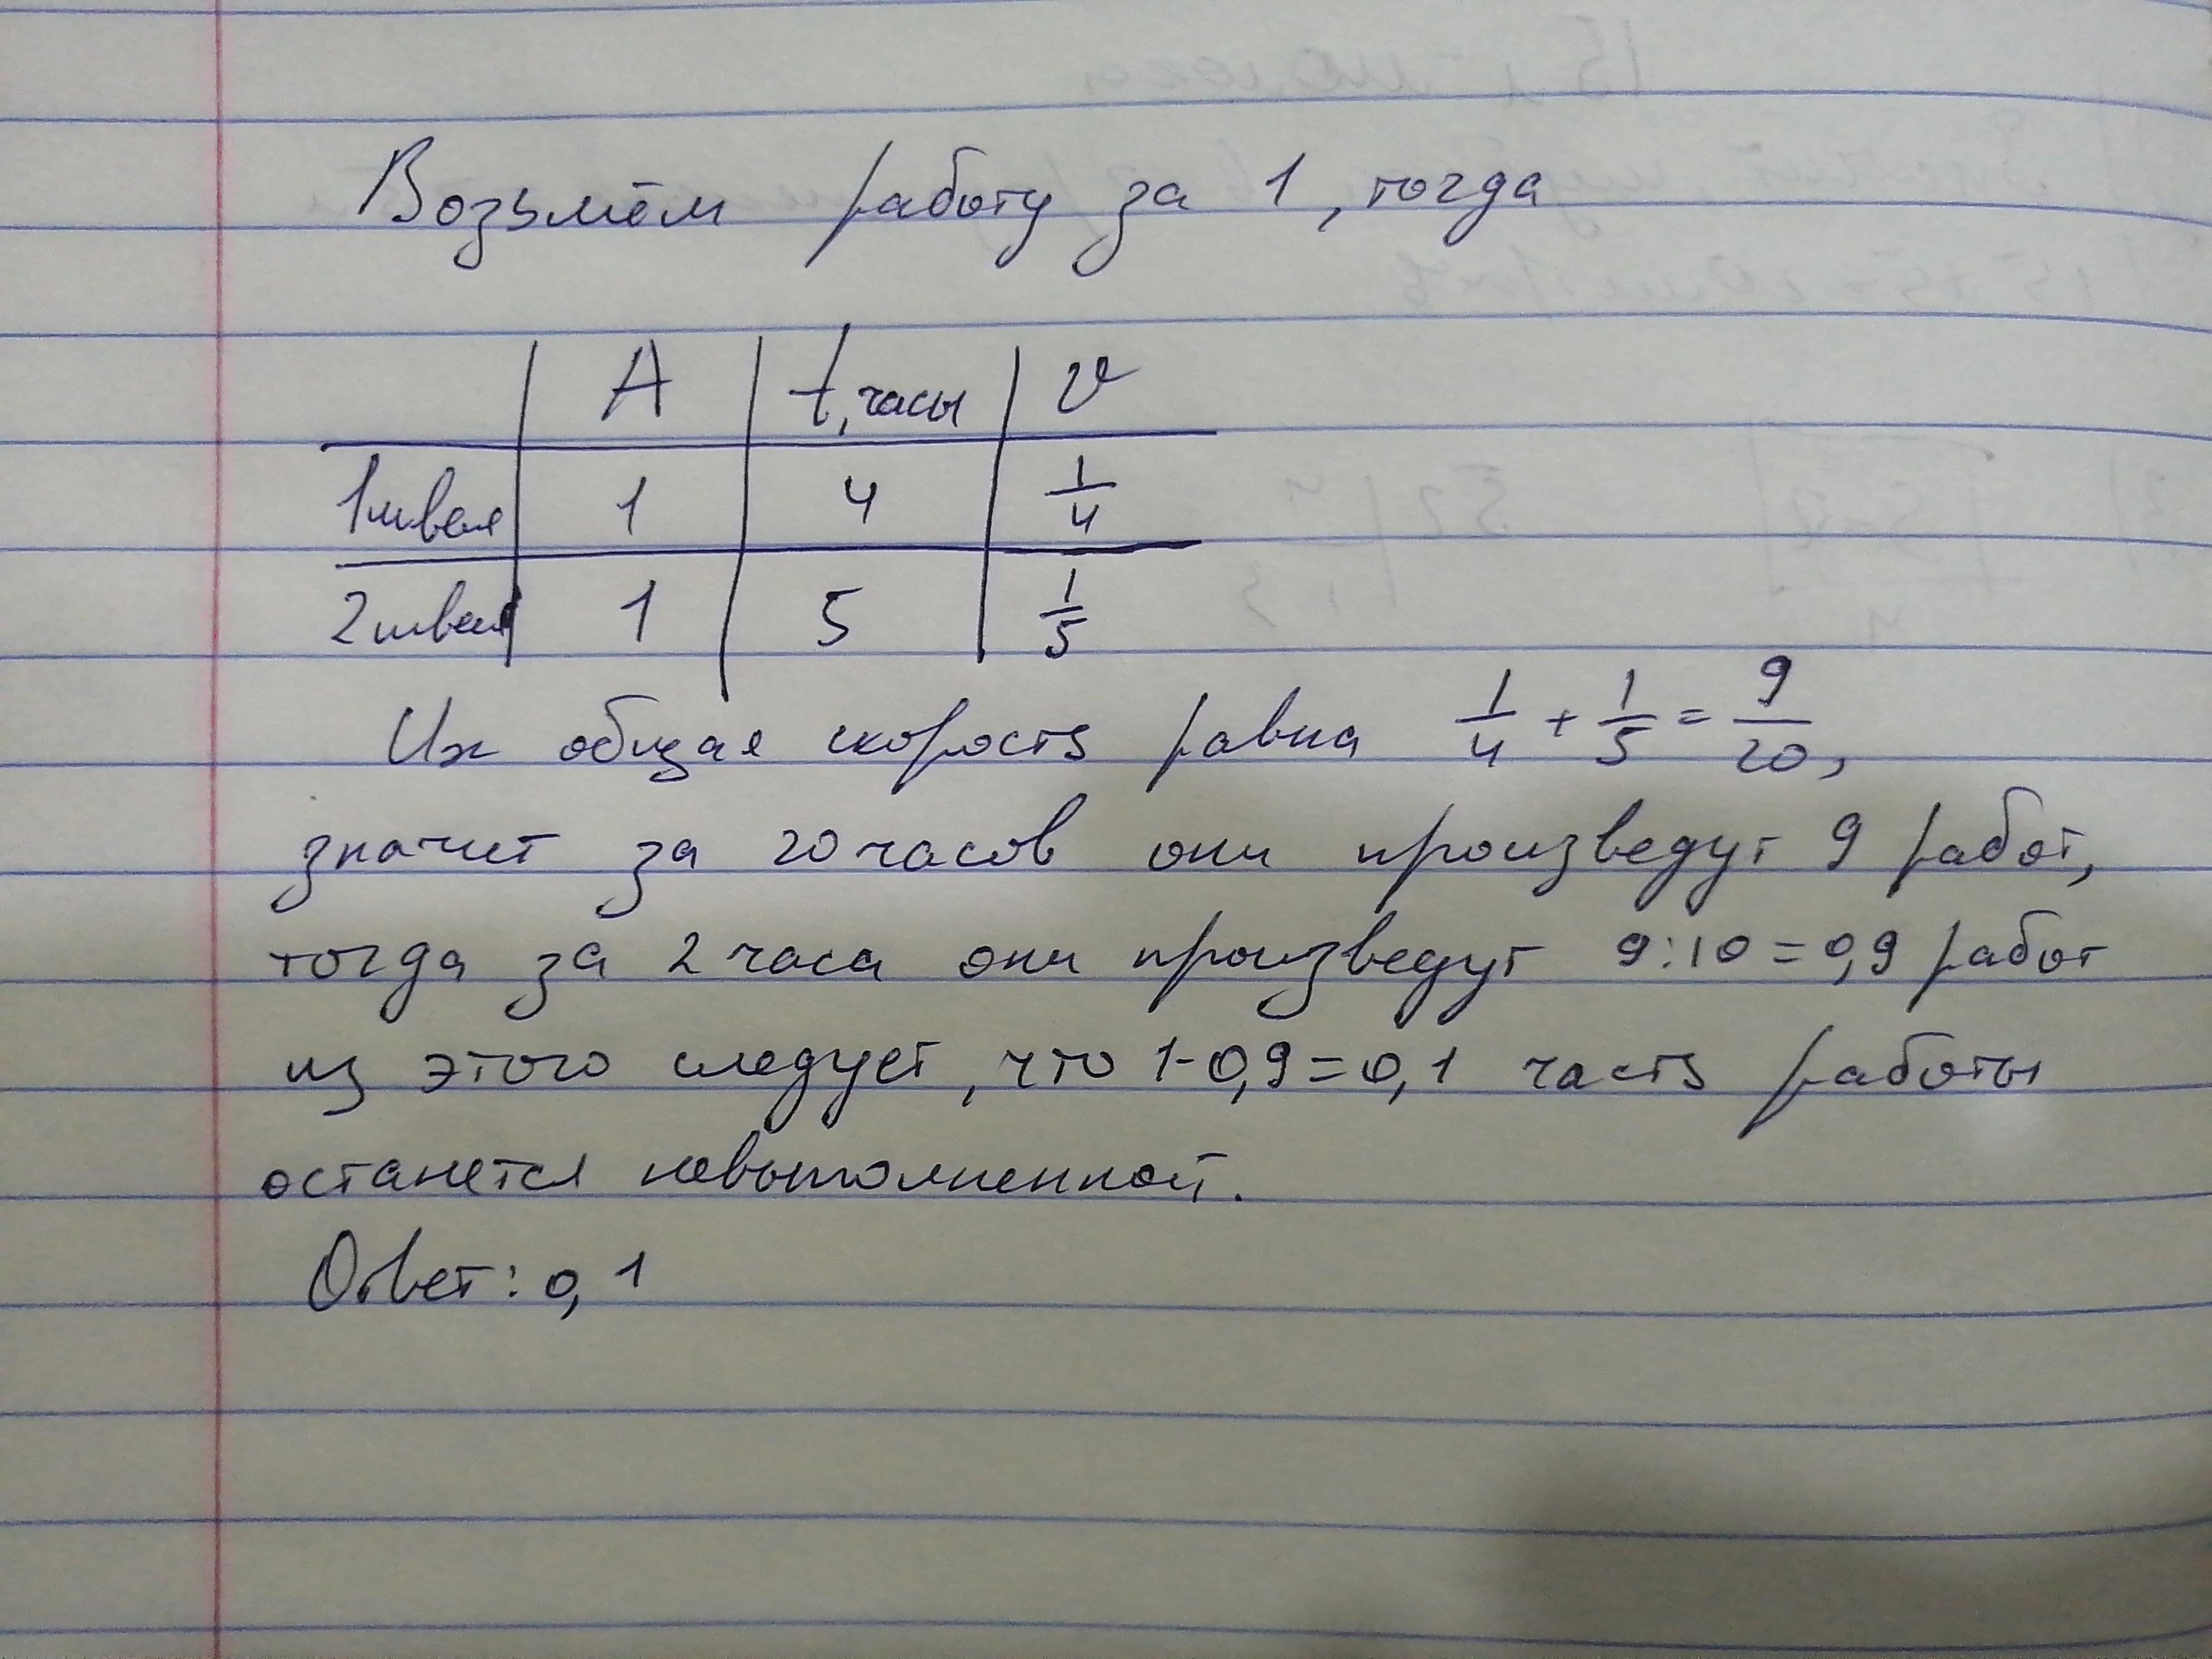 Возьмём работу за 1, тогда
A t, часы v
1 швея 1 4 1/4
2 швея 1 5 1/5
Их общая скорость равна 1/4 + 1/5 = 9/20,
значит за 20 часов они произведут 9 работ,
тогда за 2 часа они произведут 9:10=0,9 работ
из этого следует, что 1-0,9=0,1 часть работы
останется невыполненной.
Ответ: 0,1